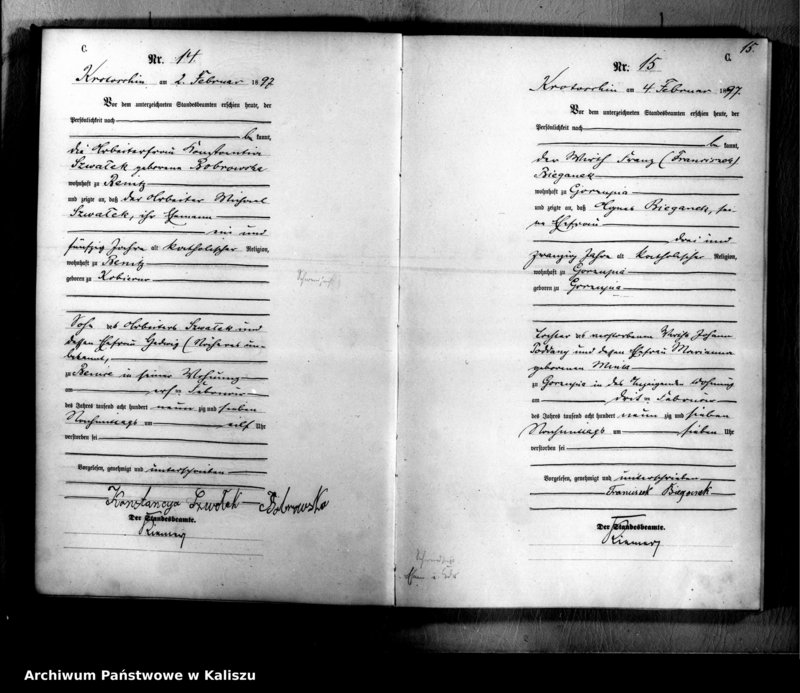 C.
Nr. 14.
Krotoschin am 2. Februar 1897
Vor dem unterzeichneten Standesbeamten erschien heute, der
Persönlichkeit nach
be kannt,
die Arbeiterfrau Konstantia
Szwałek geborene Bobrowska
wohnhaft zu Benitz
und zeigte an, daß der Arbeiter Michael
Szwałek, ihr Ehemann
ein und
fünfzig Jahre alt katholischer Religion,
wohnhaft zu Benitz
geboren zu Kobierno
Sohn des Arbeiters Szwałek und
dessen Ehefrau Hedwig (Näheres un-
bekannt,
zu Benice in seiner Wohnung
am ersten Februar
des Jahres tausend acht hundert neun zig und sieben
Nachmittags um elf Uhr
verstorben sei
Vorgelesen, genehmigt und unterschrieben
Konstancya Szwałek Bobrowska
Der Standesbeamte.
15.
C.
Nr. 15
Krotoschin am 4. Februar 1897.
Vor dem unterzeichneten Standesbeamten erschien heute, der
Persönlichkeit nach
be kannt,
der Wirth Franz (Franciszek)
Bieganek
wohnhaft zu Gorzupia
und zeigte an, daß Agnes Bieganek, sei-
ne Ehefrau
drei und
zwanzig Jahre alt katholischer Religion,
wohnhaft zu Gorzupia
geboren zu Gorzupia
Tochter des verstorbenen Wirths Johann
und dessen Ehefrau Marianna
geborenen
zu Gorzupia in des Anzeigenden Wohnung
am dritten Februar
des Jahres tausend acht hundert neun zig und sieben
Nachmittags um sieben Uhr
verstorben sei
Vorgelesen, genehmigt und unterschrieben
Franciszek Bieganek
Der Standesbeamte.
Archiwum Państwowe w Kaliszu